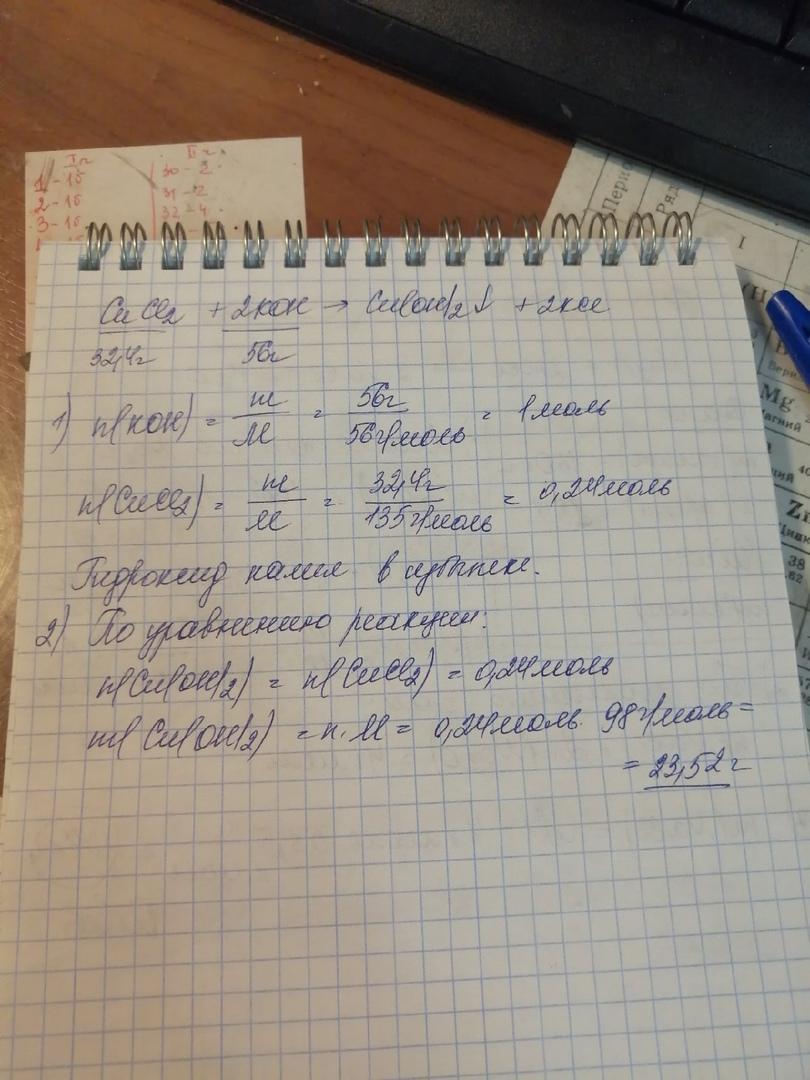 I ч
1 - 1б
2 - 1б
3 - 1б
II ч
30 - 2
31 - 2
32 - 4
Ряд
I
(H
Mg
Zn
38
CuCl2 + 2KOH → Cu(OH)2↓ + 2KCl
32,4г 56г
1) n(KOH) = m/M = 56г/56г/моль = 1моль
n(CuCl2) = m/M = 32,4г/135г/моль = 0,24моль
Гидроксид калия в избытке.
2) По уравнению реакции:
n(Cu(OH)2) = n(CuCl2) = 0,24моль
m(Cu(OH)2) = n·M = 0,24моль · 98г/моль =
= 23,52г